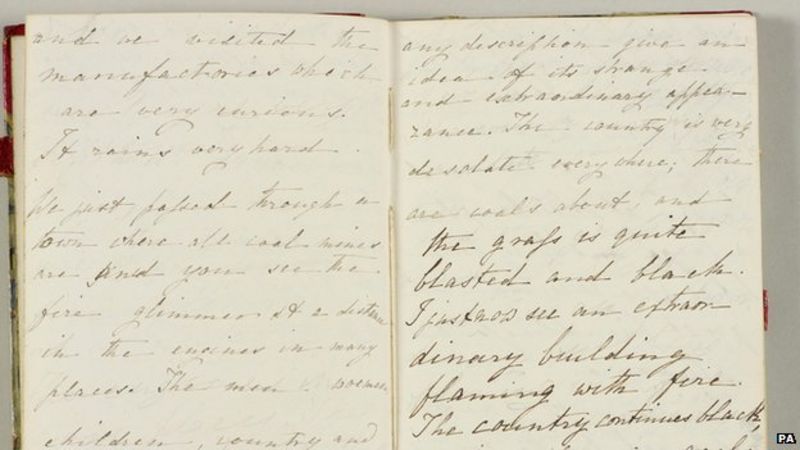 and we visited the
manufactories which
are very curious.
It rains very hard.
We just passed through a
town where all coal mines
are and you see the
fire glimmer at a distance
in the engines in many
places. The men women
children, country and
any description give an
idea of its strange
and extraordinary appea-
rance. The country is very
desolate every where; there
are coals about, and
the grass is quite
blasted and black.
I just now see an extraor-
dinary building
flaming with fire.
The country continues black,
PA